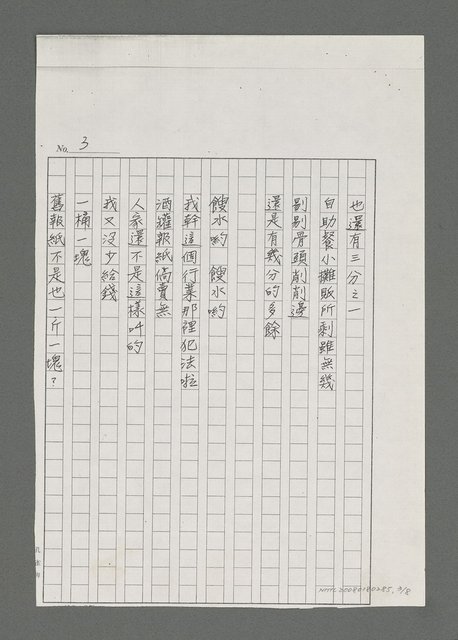 No. 3
也還有三分之一
自助餐小攤販所剩雖無幾
剔剔骨頭削削邊
還是有幾分的多餘
餿水喲 餿水喲
我幹這個行業那裡犯法啦
酒罐報紙倘賣無
人家還不是這樣叫的
我又沒少給錢
一桶一塊
舊報紙不是也一斤一塊？
NMTL20080180285, 3/8